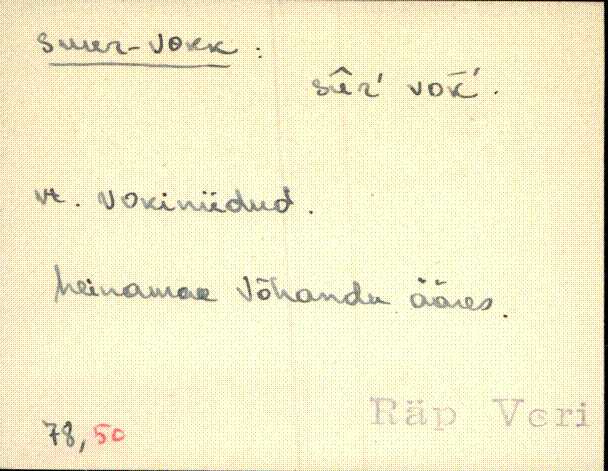 Suur-Vokk :
sûr' vok̄'.
vt. Vokiniidud.
heinamaa Võhandu ääres.
Räp Veri
78, 50